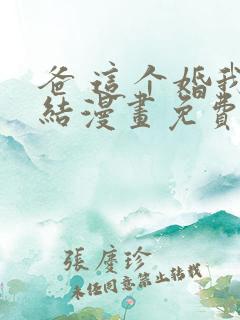 爸這个婚我
結漫畫免費
張慶珍
未经同意禁止转载